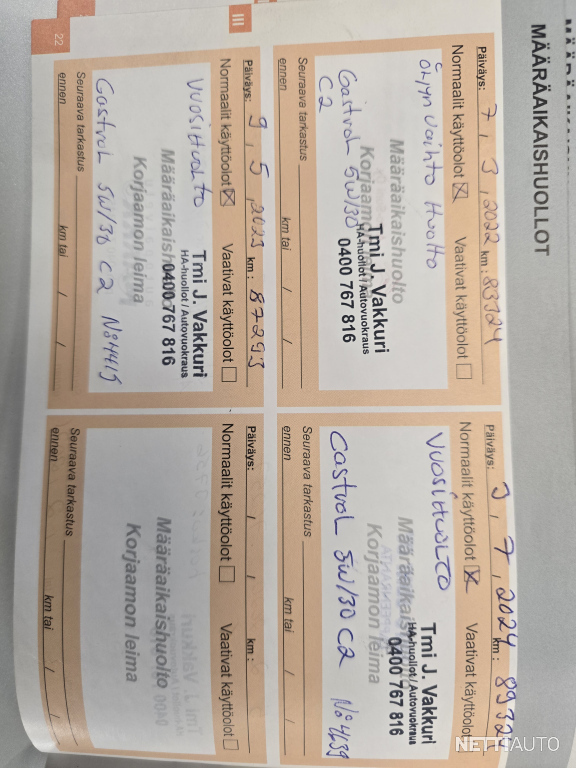 MÄÄRÄAIKAISHUOLLOT
Päiväys: 7 / 3 , 2022 km : 83324
Normaalit käyttöolot ☒ Vaativat käyttöolot ☐
Öljyn vaihto Huolto
Määräaikaishuolto
Korjaamon leima
Tmi J. Vakkuri
HA-huollot / Autovuokraus
0400 767 816
Castrol 5W/30
C2
Seuraava tarkastus
ennen km tai / /
Päiväys: 3 , 7 , 2024 km : 89324
Normaalit käyttöolot ☒ Vaativat käyttöolot ☐
Vuosihuolto
Määräaikaishuolto
Korjaamon leima
Tmi J. Vakkuri
HA-huollot / Autovuokraus
0400 767 816
Castrol 5W/30 C2 No 4639
Seuraava tarkastus
ennen km tai / /
III
Päiväys: 9 , 5 , 2023 km : 87293
Normaalit käyttöolot ☒ Vaativat käyttöolot ☐
Vuosihuolto
Määräaikaishuolto
Korjaamon leima
Tmi J. Vakkuri
HA-huollot / Autovuokraus
0400 767 816
Castrol 5W/30 C2 No 4415
Seuraava tarkastus
ennen km tai / /
Päiväys: / / km :
Normaalit käyttöolot ☐ Vaativat käyttöolot ☐
Määräaikaishuolto
Korjaamon leima
Seuraava tarkastus
ennen km tai / /
22
NETTIAUTO